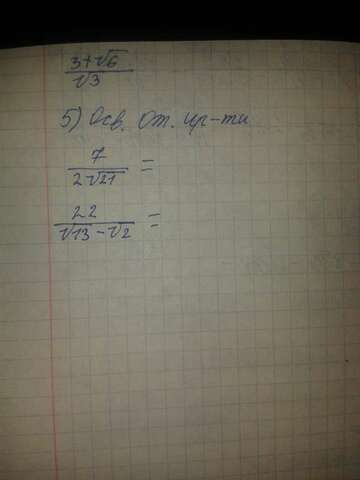 3+√6
√3
5) Осв. от. ир-ти
7
2√21 =
22
√13-√2 =